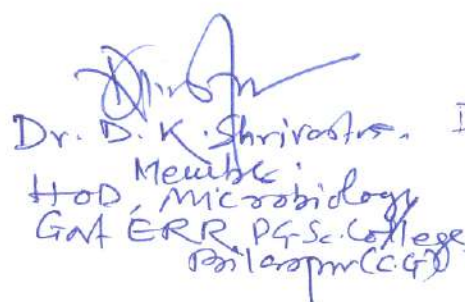 Dr. D. K. Shrivastva. I
Member.
HoD, Microbiology
Govt ERR PG Sc. College,
Bilaspur (C.G)